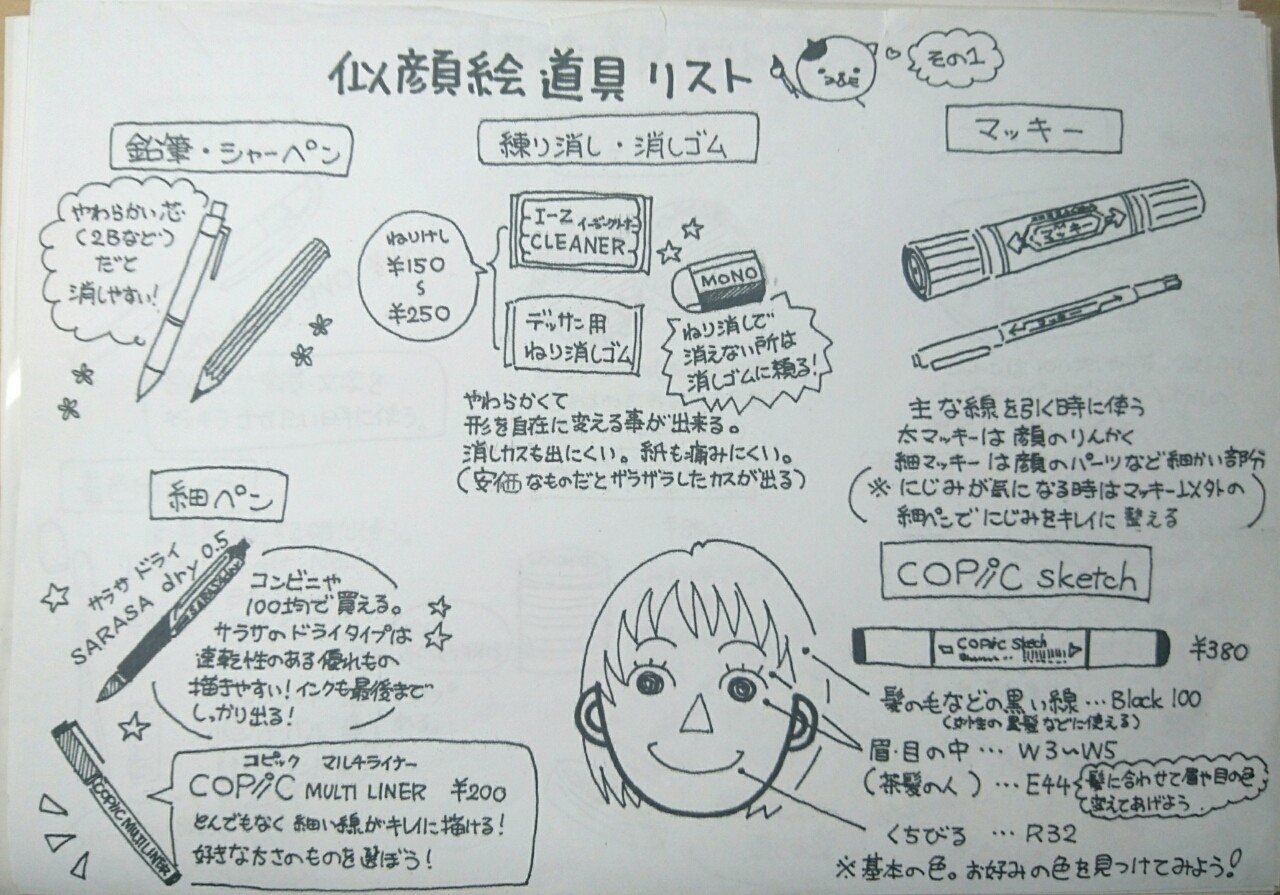 似顔絵 道具 リスト
その1
鉛筆・シャーペン
やわらかい芯
(2Bなど)
だと
消しやすい!
練り消し・消しゴム
ねりけし
¥150
~
¥250
I-Z イージークリーナー
CLEANER
デッサン用
ねり消しゴム
MONO
ねり消しで
消えない所は
消しゴムに頼る!
やわらかくて
形を自在に変える事が出来る。
消しカスも出にくい。紙も痛みにくい。
(安価なものだとザラザラしたカスが出る)
マッキー
マッキー
マッキー
主な線を引く時に使う
太マッキーは顔のりんかく
細マッキーは顔のパーツなど細かい部分
(※にじみが気になる時はマッキー以外の
細ペンでにじみをキレイに整える)
細ペン
サラサ ドライ
SARASA dry 0.5
コンビニや
100均で買える。
サラサのドライタイプは
速乾性のある優れもの
描きやすい!インクも最後まで
しっかり出る!
COPiC MULTI LINER
コピック マルチライナー
COPiC MULTI LINER ¥200
とんでもなく細い線がキレイに描ける!
好きな太さのものを選ぼう!
COPiC sketch
COPiC Sketch
¥380
髪の毛などの黒い線…Black 100
(女性の黒髪などに使える)
眉・目の中…W3~W5
(茶髪の人)…E44
髪に合わせて眉や目の色
変えてあげよう
くちびる…R32
※基本の色。お好みの色を見つけてみよう!